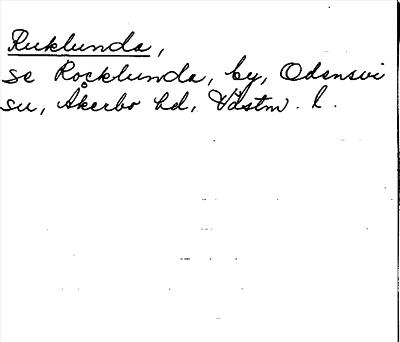 Ruklunda,
se Röcklunda, by, Odensvi
sn, Åkerbo hd, Västm. l.